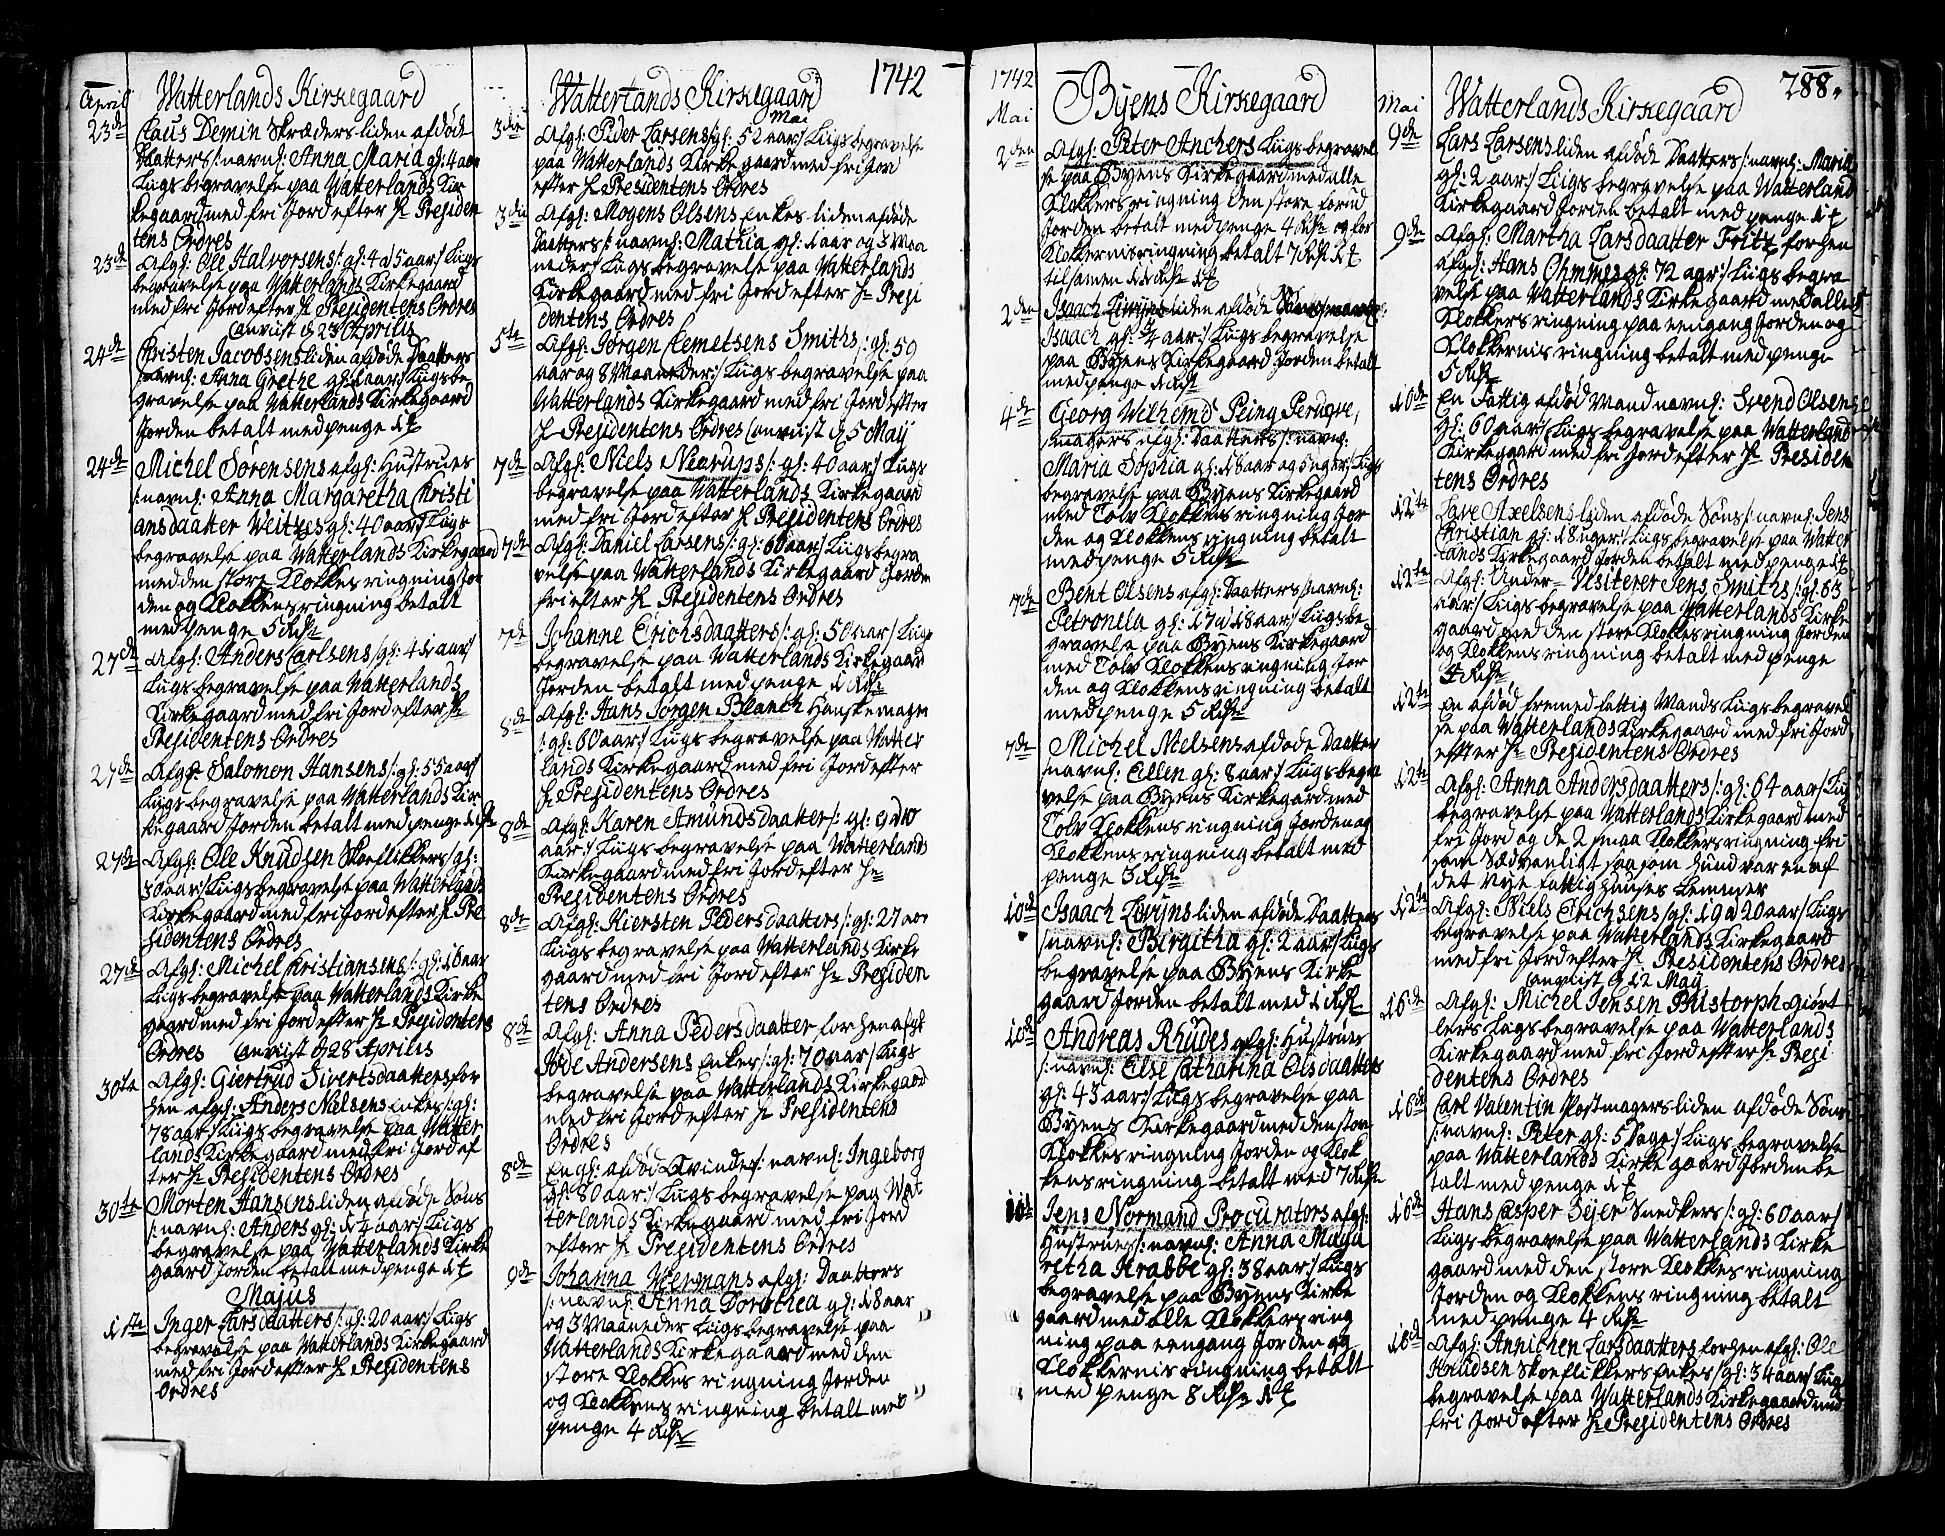 April
Watterlands Kirkegaard
23de Claus Demin Skræders liden afdøde
Daatters /: navnl: Anna Maria gl: 4 aar
Liigs begravelse paa Watterlands Kir
kegaard med fri Jord efter Hr Presiden
tens Ordres
23de Afgl: Ole Halvorsens /: gl: 4 à 5 aar:/ Liigs
begravelse paa Watterlands Kirkegaard
med fri Jord efter Hr Presidentens Ordres
anviist d 23 Aprilis
24de Christen Jacobsens liden afdøde Daatters
/: navnl: Anna Grethe gl: 1 aar:/ Liigs be
gravelse paa Watterlands Kirkegaard
Jorden betalt med penge
24de Michel Sørensens afgl: Hustrues
/: navnl: Anna Margaretha Christi
ansdaatter Weitzes gl: 40 aar:/ Liigs
begravelse paa Watterlands Kirkegaard
med den store Klokkes ringning Jor
den og Klokkens ringning betalt
med penge 5 Rdr
27de Afgl: Anders Carlsens /: gl: 41 aar:/
Liigs begravelse paa Watterlands
Kirkegaard med fri Jord efter Hr
Presidentens Ordres
27de Afgl: Salomon Hansens /: gl: 55 aar:/
Liigs begravelse paa Watterlands Kir
kegaard Jorden betalt med penge 1 Rdr
27de Afgl: Ole Knudsen Skoeflikkers /: gl:
30 aar:/ Liigs begravelse paa Watterlands
Kirkegaard med fri Jord efter Hr Pre
sidentens Ordres
27de Afgl: Michel Christiansens /: gl: 16 aar
Liigs begravelse paa Watterlands Kirke
gaard med fri Jord efter Hr Presidentens
Ordres anviist d 28 Aprilis
30te Afgl: Giertrud Sivertsdaatters for
hen afgl: Anders Nielsens Enkes /: gl:
78 aar:/ Liigs begravelse paa Watter
lands Kirkegaard med fri Jord ef
ter Hr Presidentens Ordres
30te Morten Hansens liden afdøde Søns
/: navnl: Anders gl: 14 aar:/ Liigs
begravelse paa Watterlands Kirke
gaard Jorden betalt med penge
Majus
1ste Inger Larsdaatters /: gl: 20 aar:/ Liigs
begravelse paa Watterlands Kirkegaard
med fri Jord efter Hr Presidentens
Ordres
Watterlands Kirkegaard 1742
Mai
3die Afgl: Peder Larsens /: gl: 52 aar:/ Liigs begravelse
paa Watterlands Kirkegaard med fri Jord
efter Hr Presidentens Ordres
3die Afgl: Mogens Olsens Enkes liden afdøde
Daatters /: navnl: Mathia gl: 1 aar og 3 Maa
neder:/ Liigs begravelse paa Watterlands
Kirkegaard med fri Jord efter Hr Presi
dentens Ordres
5te Afgl: Jørgen Clemetsens Smiths /: gl: 59
aar og 8 Maaneder:/ Liigs begravelse paa
Watterlands Kirkegaard med fri Jord efter
Hr Presidentens Ordres anviist d 5 Maij
7de Afgl: Niels Nierups /: gl: 40 aar:/ Liigs
begravelse paa Watterlands Kirkegaard
med fri Jord efter Hr Presidentens Ordres
7de Afgl: Daniel Larsens /: gl: 60 aar:/ Liigs begra
velse paa Watterlands Kirkegaard Jorden
fri efter Hr Presidentens Ordres
7de Johanne Erichsdaatters /: gl: 50 aar:/ Liigs
begravelse paa Watterlands Kirkegaard
Jorden betalt med penge 1 Rdr
8de Afgl: Hans Jørgen Blanch Handskemager
/: gl: 60 aar:/ Liigs begravelse paa Watter
lands Kirkegaard med fri Jord efter
Hr Presidentens Ordres
8de Afgl: Karen Amundsdaatter /: gl: 9 à 10
aar:/ Liigs begravelse paa Watterlands
Kirkegaard med fri Jord efter Hr
Presidentens Ordres
8de Afgl: Kiersten Pedersdaatters /: gl: 27 aar
Liigs begravelse paa Watterlands Kirke
gaard med fri Jord efter Hr Presiden
tens Ordres
8de Afgl: Anna Pedersdaatter forhen afgl:
Andersens Enkes /: gl: 70 aar:/ Liigs
begravelse paa Watterlands Kirkegaard
med fri Jord efter Hr Presidentens
Ordres
8de En gl: afdød Kvindes /: navnl: Ingeborg
gl: 80 aar:/ Liigs begravelse paa Wat
terlands Kirkegaard med fri Jord
efter Hr Presidentens Ordres
9de Johanna Hermans afgl: Daatters
/: navnl: Anna Dorothea gl: 18 aar
og 3 Maaneder Liigs begravelse paa
Watterlands Kirkegaard med den
store Klokkes ringning Jorden
og Klokkens ringning betalt med
penge 4 Rdr
1742
Mai
Byens Kirkegaard
2den Afgl: Peter Anchers Liigs begravel
se paa Byens Kirkegaard med alle
Klokkers ringning den store forud
Jorden betalt med penge 4 Rdr og for
Klokkernis ringning betalt 7 Rdr
tilsamen
2den Isach liden afdøde Søns navnl:
Isaach gl: 1/4 aar:/ Liigs begravelse
paa Byens Kirkegaard Jorden betalt
med penge 1 Rdr
4de Georg Wilhemd Peing Peruqve,
magers afgl: Daatters /: navnl:
Maria Sophia gl: 18 aar og 5 uger:/ Liigs
begravelse paa Byens Kirkegaard
med Tolv Klokkens ringning Jor
den og Klokkens ringning betalt
med penge 5 Rdr
7de Bent Olsens afgl: Daatters /: navnl:
Petronela gl: 17 à 18 aar:/ Liigs be
gravelse paa Byens Kirkegaard
med Tolv Klokkens ringning Jor
den og Klokkens ringning betalt
med penge 5 Rdr
7de Michel Nielsens afdøde Daatter
/: navnl: Ellen gl: 8 aar:/ Liigs begra
velse paa Byens Kirkegaard med
Tolv Klokkens ringning Jorden og
Klokkens ringning betalt med
penge 3 Rdr
10de Isaach liden afdøde Daatters
/: navnl: Birgitha gl: 2 aar:/ Liigs
begravelse paa Byens Kirke
gaard Jorden betalt med 1 Rdr
10de Andreas Rhudes afgl: Hustrues
/: navnl: Else Catharina Olsdaatters
gl: 43 aar:/ Liigs begravelse paa
Byens Kirkegaard med den store
Klokkes ringning Jorden og Klok
kens ringning betalt med 7 Rdr
11te Jens Normand Procurators afgl:
Hustrues /: navnl: Anna Marga
retha Krabbe gl: 38 aar:/ Liigs
begravelse paa Byens Kirke
gaard med alle Klokkers ring
ning paa eengang Jorden og
Klokkernis ringning betalt
med penge 8 Rdr
Mai
Watterlands Kirkegaard 288.
9de Lars Larsens liden afdøde Daatters /: navnl: Maria
gl: 2 aar:/ Liigs begravelse paa Watterland
Kirkegaard Jorden betalt med penge
9de Afgl: Martha Larsdaatter Fritz forhen
afgl: Hans Ohmmes gl: 72 aar:/ Liigs begra
velse paa Watterlands Kirkegaard med alle
Klokkers ringning paa eengang Jorden og
Klokkernis ringning betalt med penge
5 Rdr
10de En Fattig afdød Mand navnl: Svend Olsens
gl: 60 aar:/ Liigs begravelse paa Watterland
Kirkegaard med fri Jord efter Hr Presiden
tens Ordres
12te Lave Axelsens liden afdøde Søns /: navnl: Jens
Christian gl: 18 uger:/ Liigs begravelse paa Watter
lands Kirkegaard Jorden betalt med penge
12te Afgl: Under Visiterer Jens Smiths /: gl: 63
aar:/ Liigs begravelse paa Watterlands Kirke
gaard med den store Klokkes ringning Jorden
og Klokkens ringning betalt med penge
4 Rdr
12te En afdød fremed fattig Mands Liigs begravel
se paa Watterlands Kirkegaard med fri Jord
efter Hr Presidentens Ordres
12te Afgl: Anna Andersdaatters /: gl: 64 aar:/ Lii
begravelse paa Watterlands Kirkegaard med
fri Jord og de 2 smaa Klokkers ringning fri
som Sædvanligt saasom hund var en af
det Nye Fattighuuses Lemmer
12te Afgl: Niels Erichsens /: gl: 19 à 20 aar:/ Liigs
begravelse paa Watterlands Kirkegaard
med fri Jord efter Hr Presidentens Ordres
anviist d 12 May
16de Afgl: Michel Jensen Pristorph Giørt
lers Liigs begravelse paa Watterlands
Kirkegaard med fri Jord efter Hr Presi
dentens Ordres
16de Carl Valentin Postmagers liden afdøde Søns
/: navnl: Peter gl: 5 Dage:/ Liigs begravelse
paa Watterlands Kirkegaard Jorden be
talt med penge
16de Hans Casper Beyer Snedkers /: gl: 60 aar:/
Liigs begravelse paa Watterlands Kirke
gaard med den store Klokkes ringning
Jorden og Klokkens ringning betalt
med penge 4 Rdr
18de Afgl: Annichen Larsdaatters forhen afgl: Ole
Knudsen Skoeflikkers Enkes /: gl: 34 aar:/ Liigs
begravelse paa Watterlands Kirkegaard med
fri Jord efter Hr Presidentens Ordres